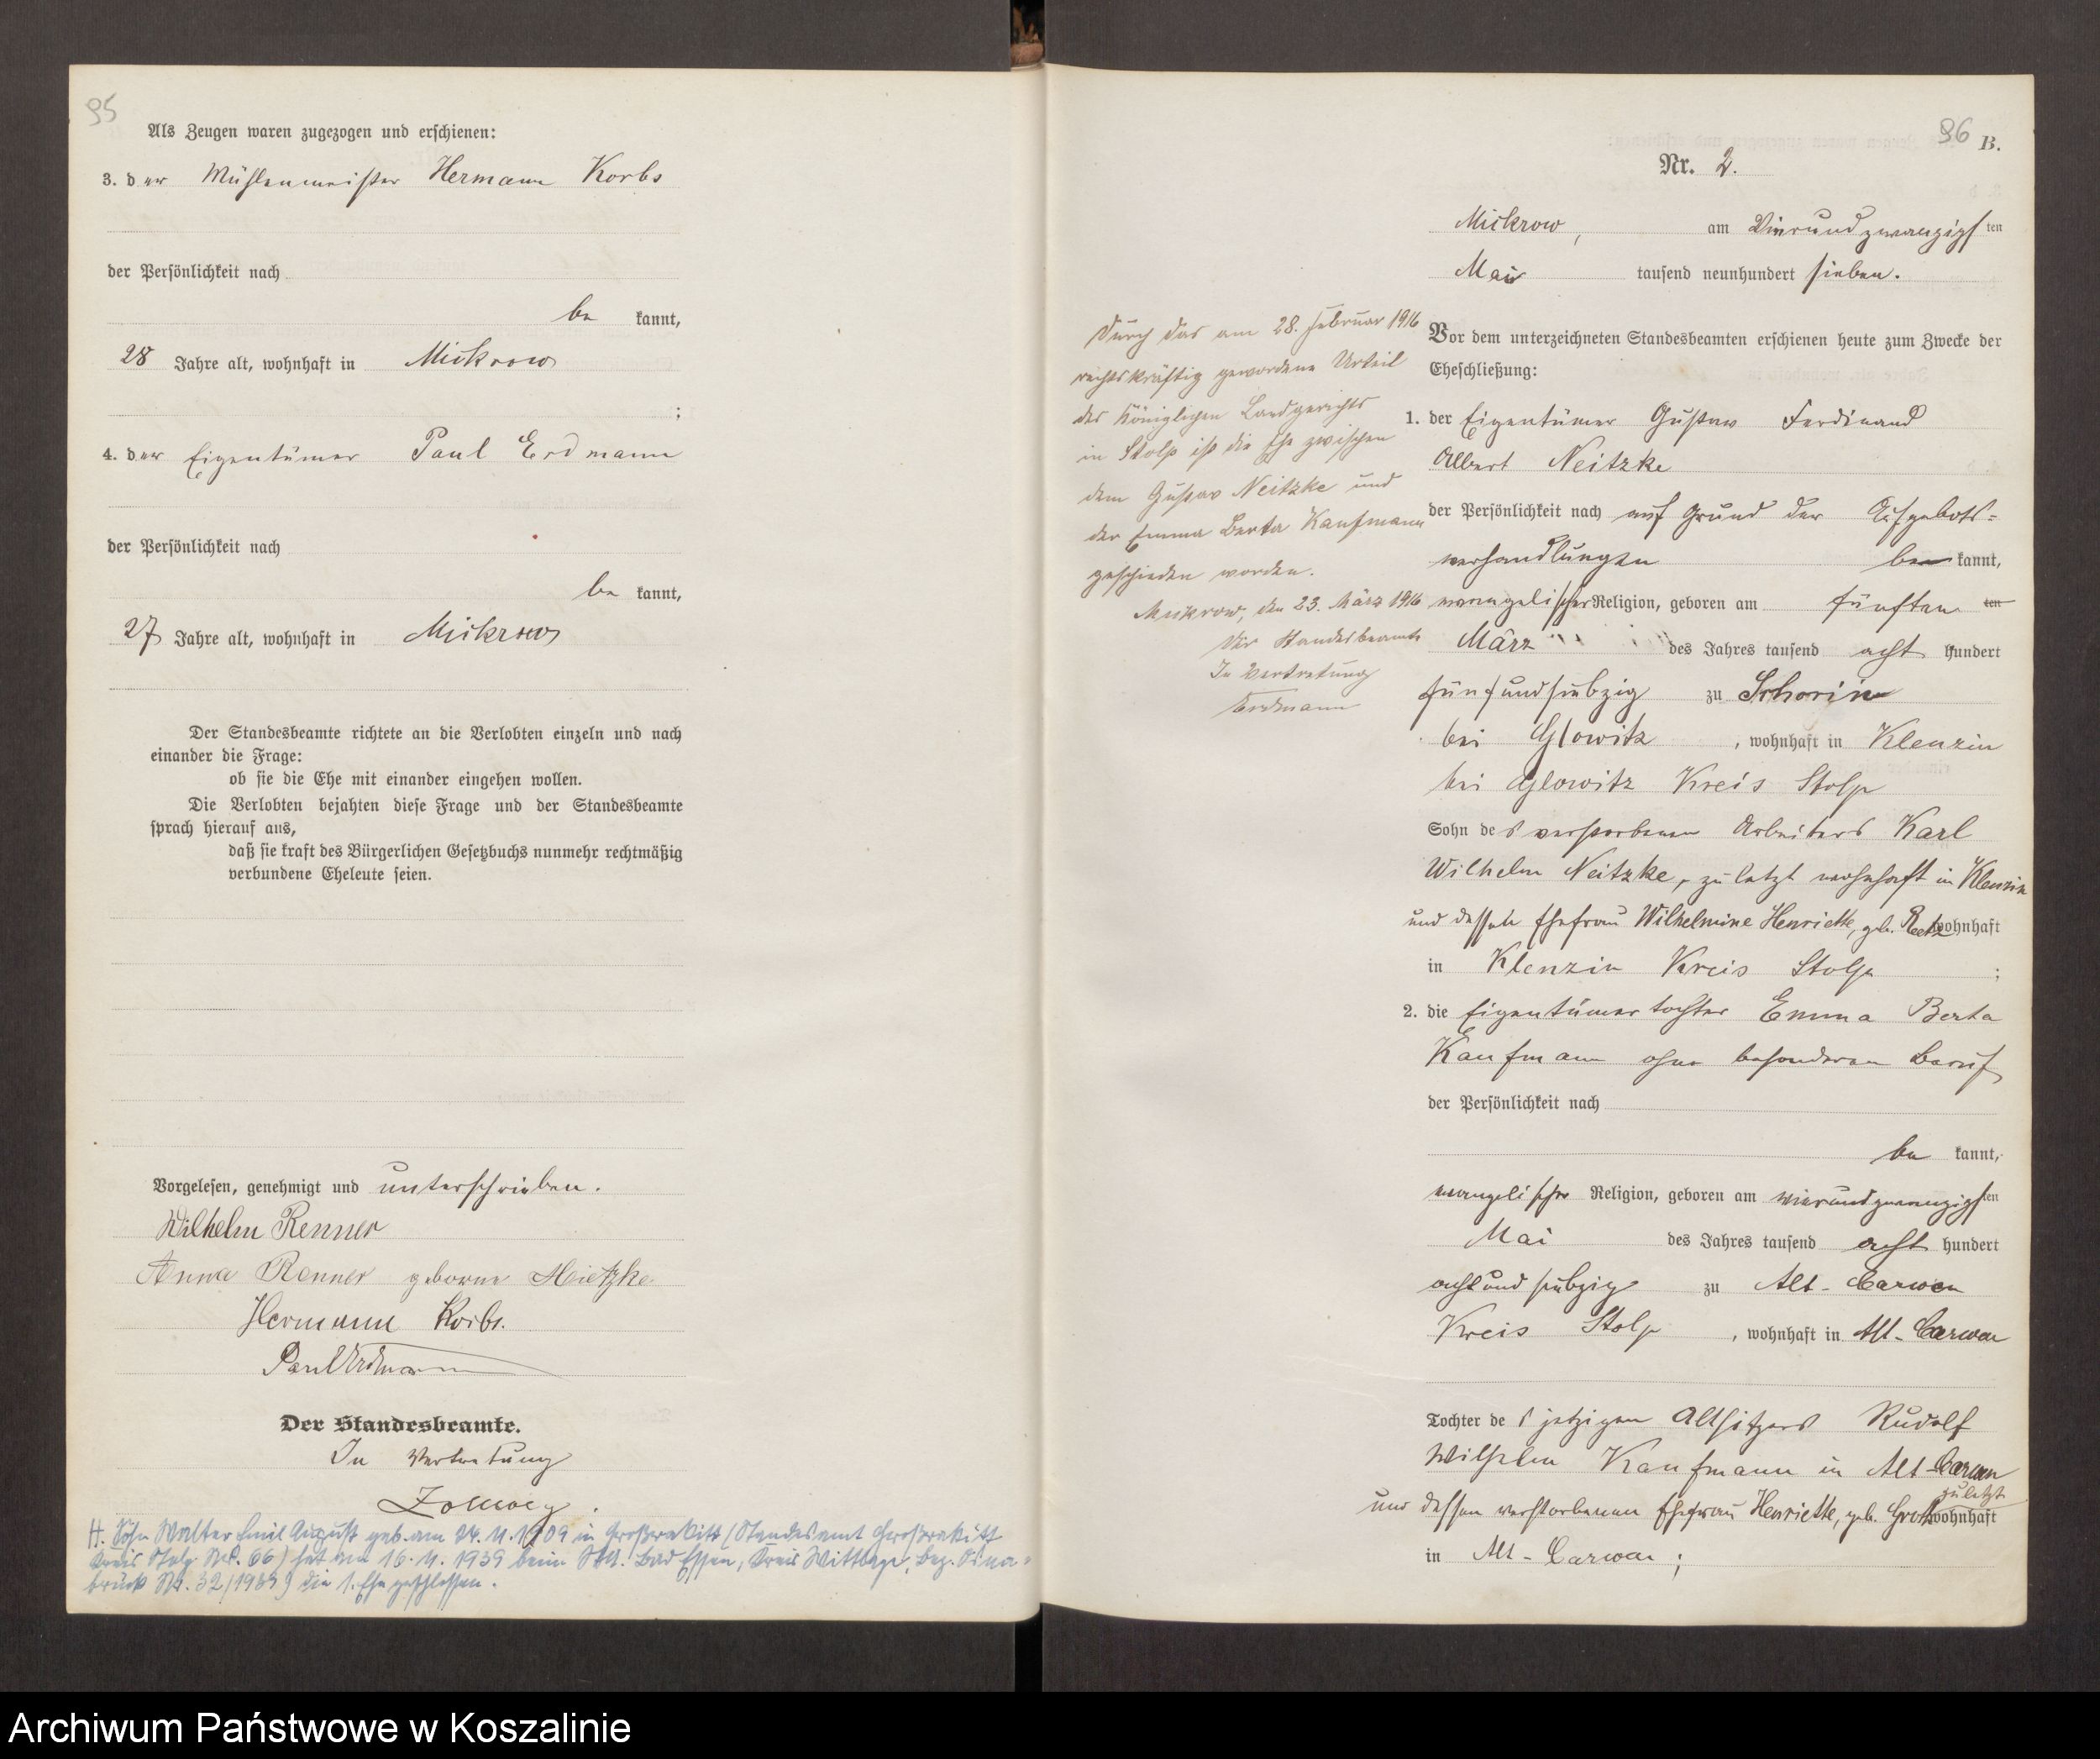 95
Als Zeugen waren zugezogen und erschienen:
3. der Mühlenmeister Hermann Korbs
der Persönlichkeit nach
be kannt,
28 Jahre alt, wohnhaft in Mickrow
;
4. der Eigentümer Paul Erdmann
der Persönlichkeit nach
be kannt,
27 Jahre alt, wohnhaft in Mickrow
Der Standesbeamte richtete an die Verlobten einzeln und nach
einander die Frage:
ob sie die Ehe mit einander eingehen wollen.
Die Verlobten bejahten diese Frage und der Standesbeamte
sprach hierauf aus,
daß sie kraft des Bürgerlichen Gesetzbuchs nunmehr rechtmäßig
verbundene Eheleute seien.
Vorgelesen, genehmigt und unterschrieben.
Wilhelm Renner
Anna Renner geborne Mietzke
Hermann Korbs.
Paul Erdmann
Der Standesbeamte.
In Vertretung
H. Sohn Walter Emil August geb. am 24.11.1909 in Großrakitt (Standesamt Großrakitt
Kreis Stolp Nr. 66) hat am 16.11.1939 beim StA. Bad Essen, Kreis Wittlage, Bez. Osna-
brück Nr. 32/1939) die 1. Ehe geschlossen.
96
B.
Nr. 2.
Mickrow, am Vierundzwanzigsten
Mai tausend neunhundert sieben.
Vor dem unterzeichneten Standesbeamten erschienen heute zum Zwecke der
Eheschließung:
1. der Eigentümer Gustav Ferdinand
Albert Neitzke
der Persönlichkeit nach auf Grund der Aufgebots-
verhandlungen be kannt,
evangelischer Religion, geboren am fünften ten
März des Jahres tausend acht hundert
fünfundsiebzig zu Schorin
bei Glowitz, wohnhaft in Klenzin
bei Glowitz Kreis Stolp
Sohn des verstorbenen Arbeiters Karl
Wilhelm Neitzke, zuletzt wohnhaft in Klenzin
und dessen Ehefrau Wilhelmine Henriette, geb. Reetz wohnhaft
in Klenzin Kreis Stolp ;
2. die Eigentümertochter Emma Berta
Kaufmann ohne besonderen Beruf
der Persönlichkeit nach
be kannt,
evangelischer Religion, geboren am vierundzwanzigsten
Mai des Jahres tausend acht hundert
achtundsiebzig zu Alt-Carwen
Kreis Stolp, wohnhaft in Alt-Carwen
Tochter des jetzigen Altsitzers Rudolf
Wilhelm Kaufmann in Alt-Carwen
zuletzt
und dessen verstorbenen Ehefrau Henriette, geb. Groth wohnhaft
in Alt-Carwen;
Durch das am 28. Februar 1916
rechtskräftig gewordene Urteil
des Königlichen Landgerichts
in Stolp ist die Ehe zwischen
dem Gustav Neitzke und
der Emma Berta Kaufmann
geschieden worden.
Mickrow, den 23. März 1916
Der Standesbeamte
In Vertretung
Erdmann
Archiwum Państwowe w Koszalinie